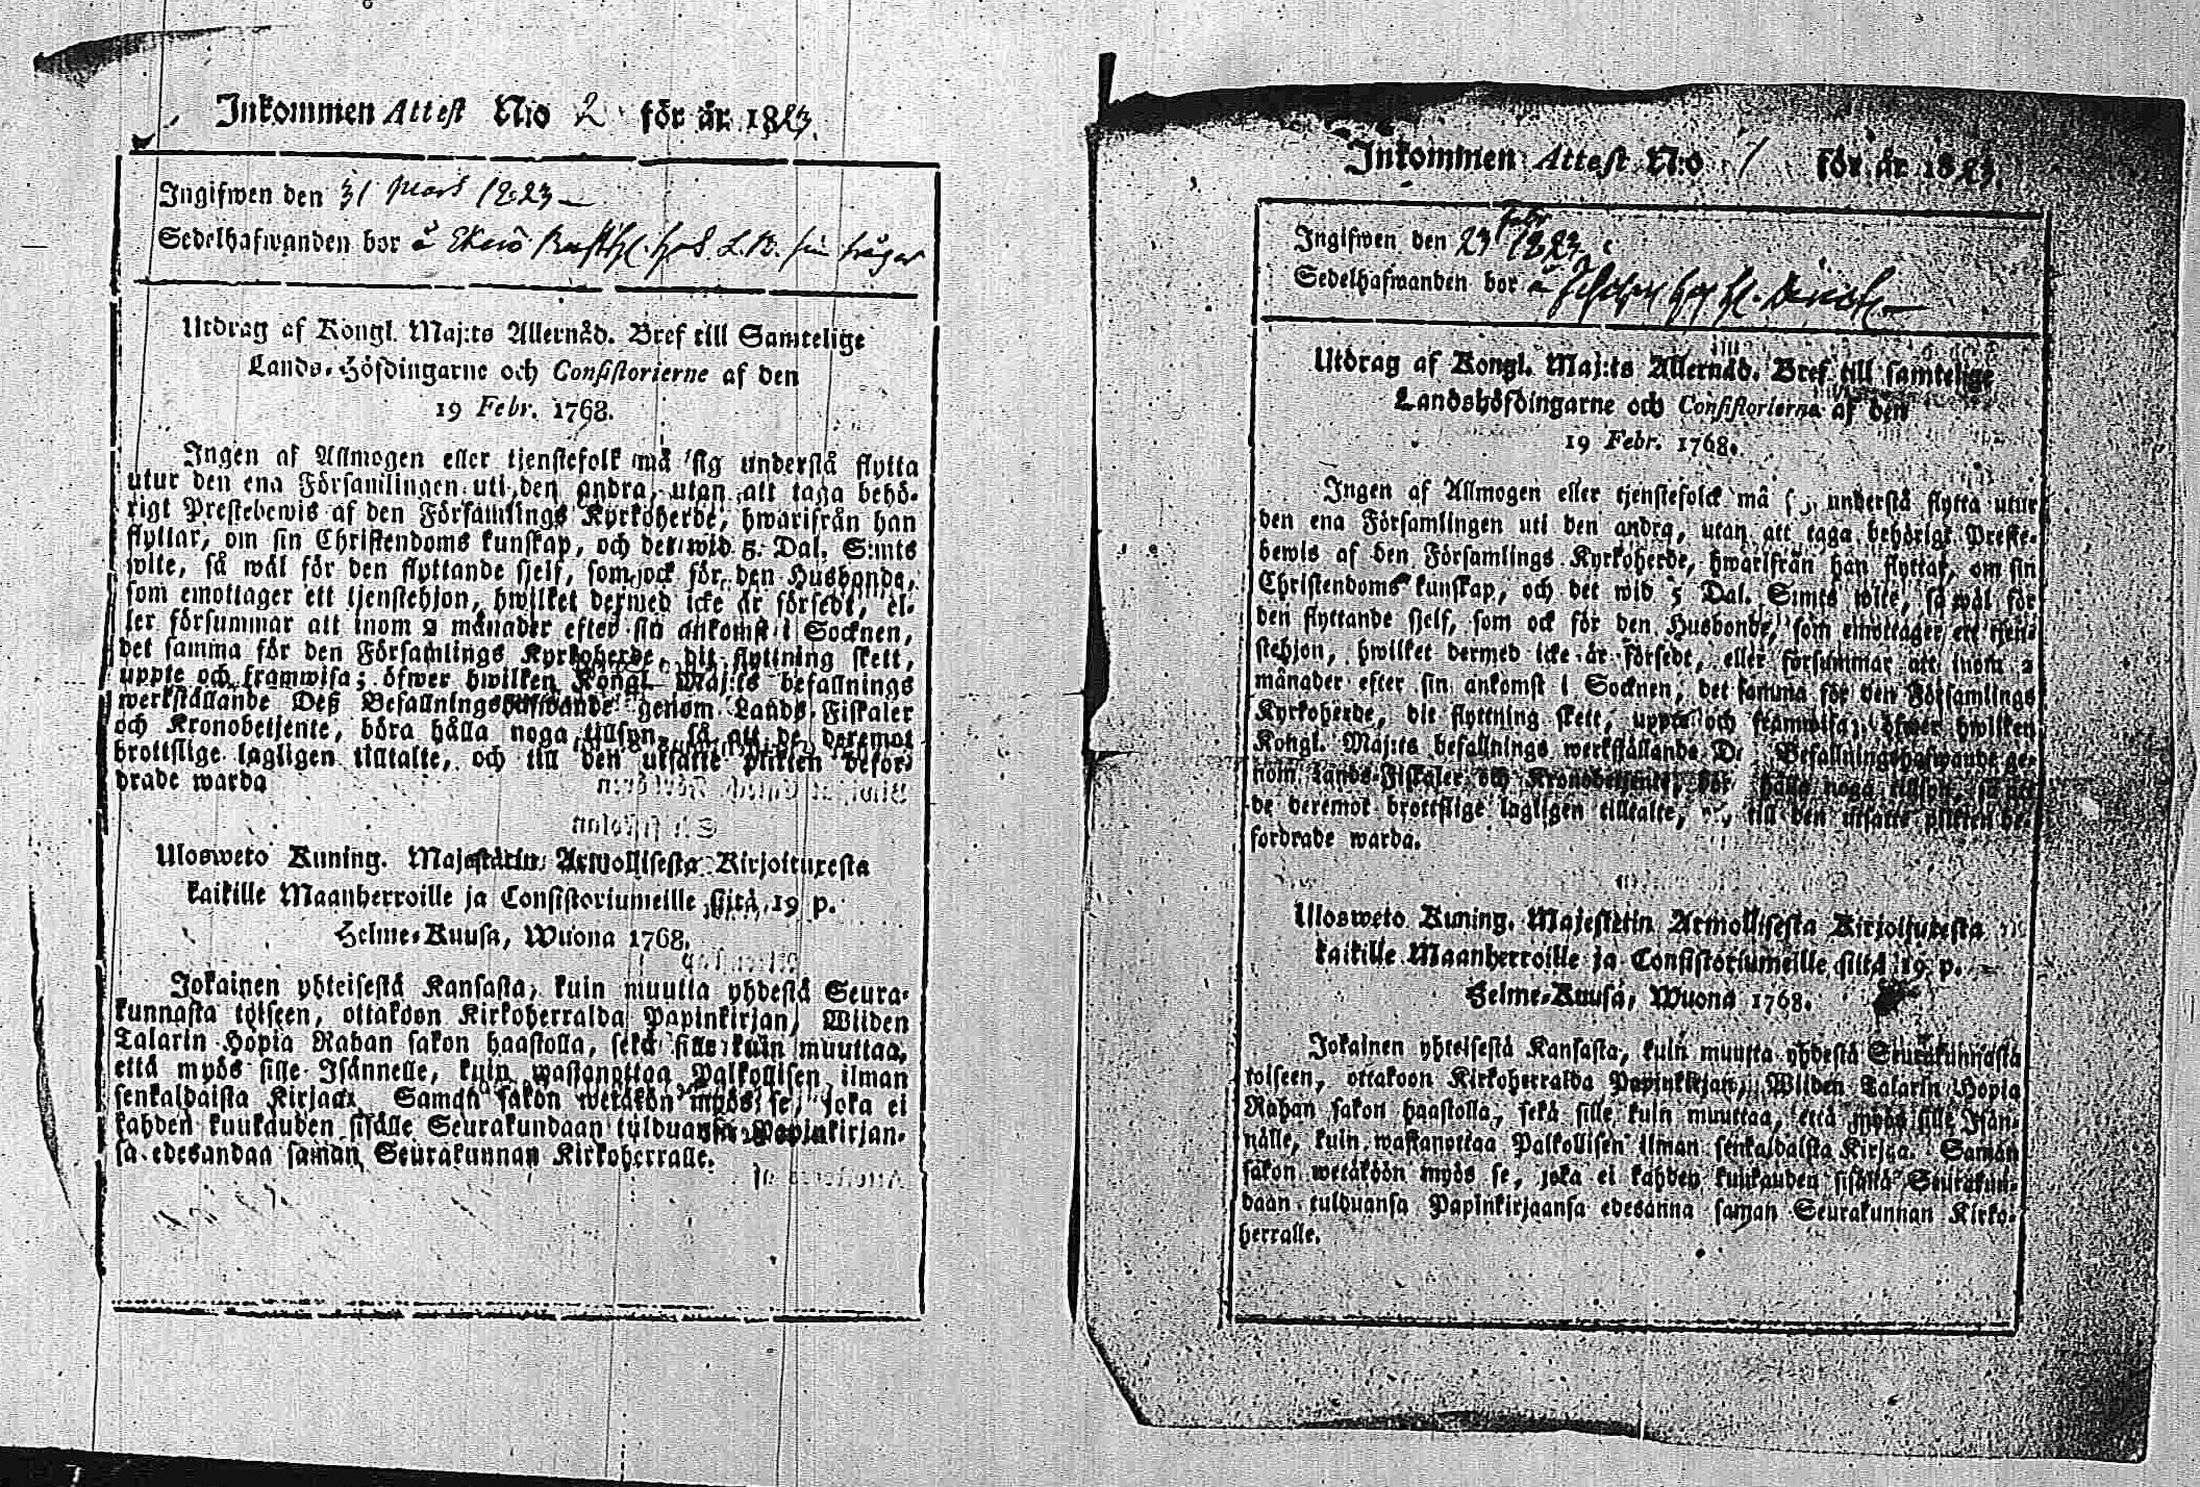 Inkommen Attest N:o 2 för år 1823.
Ingifwen den 31 Mars 1823
Sedelhafwanden bor å Ekerö
Utdrag af Kongl. Maj:ts Allernåd. Bref till Samtelige
Lands-Höfdingarne och Consistorierne af den
19 Febr. 1768.
Ingen af Allmogen eller tjenstefolk må sig understå flytta
utur den ena Församlingen uti den andra, utan att taga behö-
rigt Prestebewis af den Församlings Kyrkoherde, hwarifrån han
flyttar, om sin Christendoms kunskap, och det wid 5. Dal. S:mts
wite, så wäl för den flyttande sjelf, som ock för den Husbonde,
som emottager ett tjenstehjon, hwilket dermed icke är försedt, el-
ler försummar att inom 2 månader efter sin ankomst i Socknen,
det samma för den Församlings Kyrkoherde, dit flyttning skett,
uppte och framwisa; öfwer hwilken Kongl. Maj:ts befallnings
werkställande Deß Befallningshafwande genom Lands-Fiskaler
och Kronobetjente, böra hålla noga tillsyn, så att de deremot
brottslige lagligen tilltalte, och till den utsatte plikten befor-
drade warda
Ulosweto Kuning. Majestätin Armollisesta Kirjoituxesta
kaikille Maanherroille ja Consistoriumeille siitä 19 p.
Helme-Kuusa, Wuona 1768.
Jokainen yhteisestä Kansasta, kuin muutta yhdestä Seura-
kunnasta toiseen, ottakoon Kirkoherralda Papinkirjan, Wiiden
Talarin Hopia Rahan sakon haastolla, sekä sille kuin muuttaa,
että myös sille Isännelle, kuin wastanottaa Palkollisen ilman
senkaldaista Kirjaa. Saman sakon wetäkön myös se, joka ei
kahden kuukauden sisälle Seurakundaan tulduansa Papinkirjan-
sa edesandaa saman Seurakunnan Kirkoherralle.
Inkommen Attest N:o 1 för år 1823.
Ingifwen den 23 Febr 1823
Sedelhafwanden bor å
Utdrag af Kongl. Maj:ts Allernåd. Bref till samtelige
Landshöfdingarne och Consistorierne af den
19 Febr. 1768.
Ingen af Allmogen eller tjenstefolck må understå flytta utur
den ena Församlingen uti den andra, utan att taga behörigt Preste-
bewis af den Församlings Kyrkoherde, hwarifrån han flyttar, om sin
Christendoms kunskap, och det wid 5 Dal. S:mts wite, så wäl för
den flyttande sjelf, som ock för den Husbonde, som emottager ett tjen-
stehjon, hwilket dermed icke är försedt, eller försummar att inom 2
månader efter sin ankomst i Socknen, det samma för den Församlings
Kyrkoherde, dit flyttning skett, uppte och framwisa; öfwer hwilken
Kongl. Maj:ts befallnings werkställande Befallningshafwande ge-
nom Lands-Fiskaler och Kronobetjente, hålla noga tillsyn, så att
de deremot brottslige lagligen tilltalte, till den utsatte plikten be-
fordrade warda.
Ulosweto Kuning. Majestetin Armollisesta Kirjoituxesta
kaikille Maanherroille ja Consistoriumeille siitä 19 p.
Helme-Kuusa, Wuona 1768.
Jokainen yhteisestä Kansasta, kuin muutta yhdestä Seurakunnasta
toiseen, ottakoon Kirkoherralda Papinkirjan, Wiiden Talarin Hopia
Rahan sakon haastolla, sekä sille kuin muuttaa, että myös sille Isän-
nälle, kuin wastanottaa Palkollisen ilman senkaldaista Kirjaa. Saman
sakon wetäköön myös se, joka ei kahden kuukauden sisällä Seurakun-
daan tulduansa Papinkirjaansa edesanna saman Seurakunnan Kirko-
herralle.